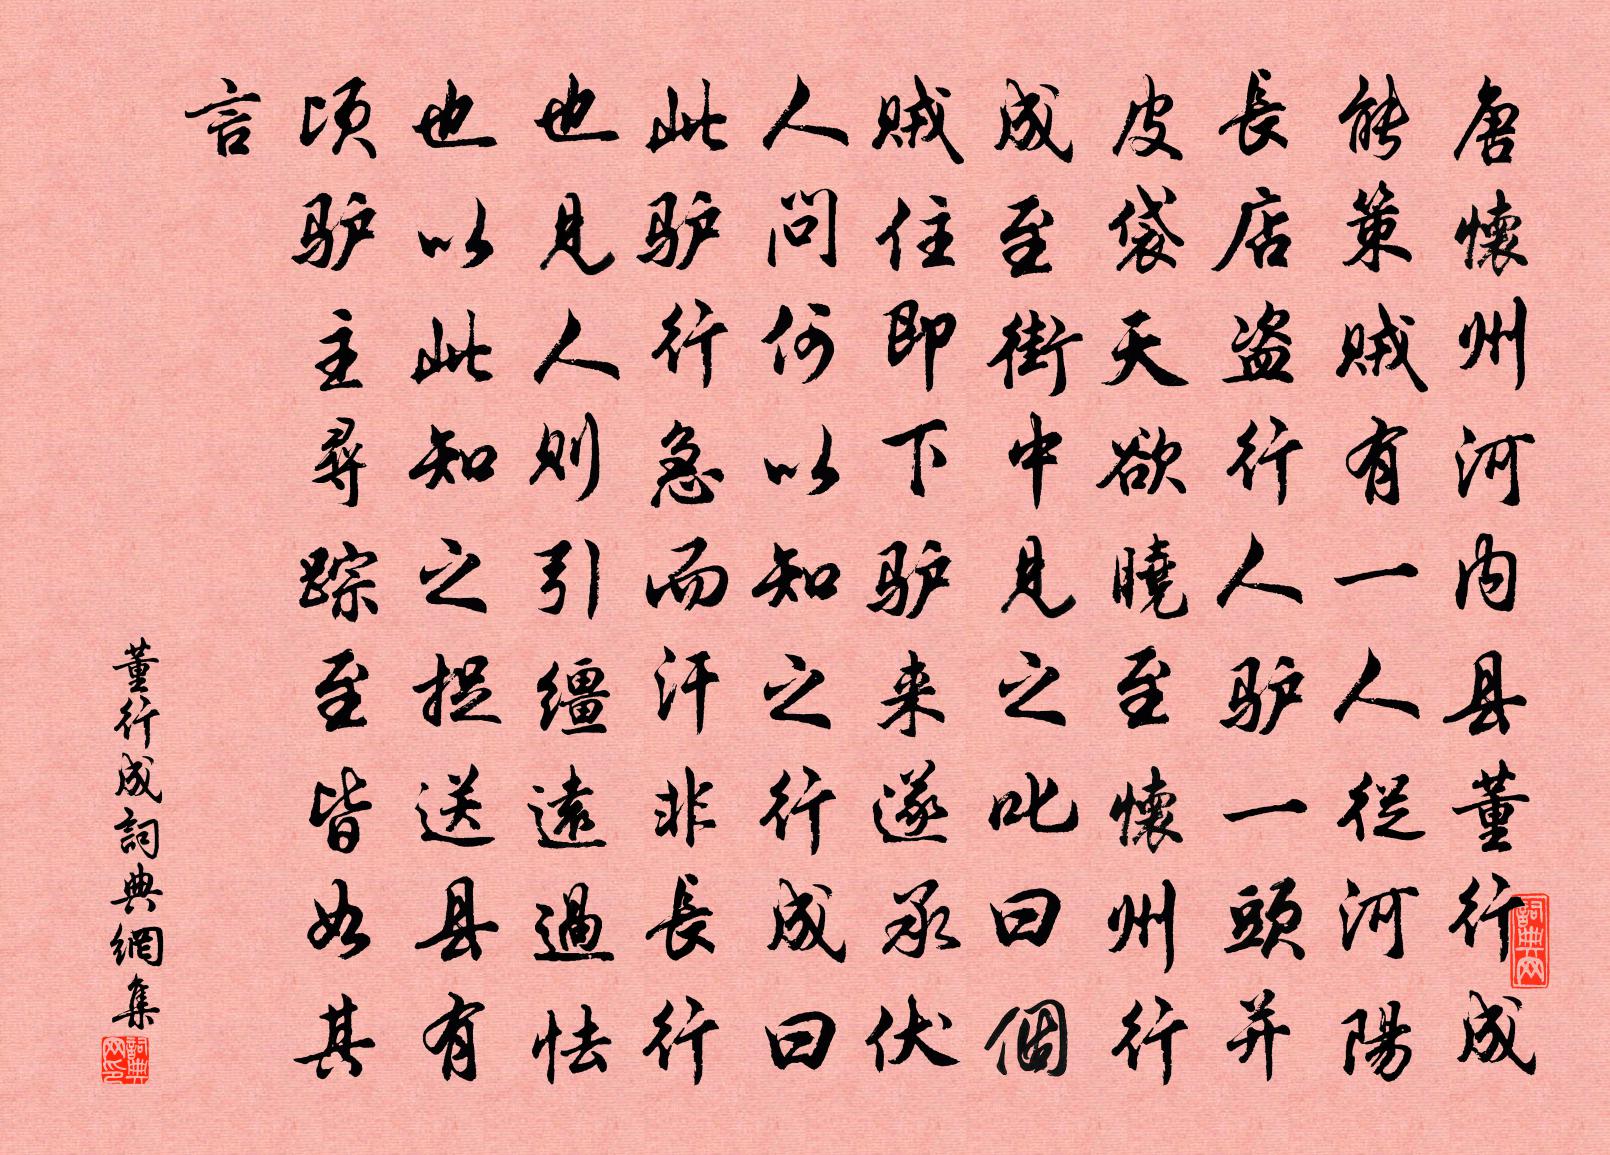 唐懷州河内县董行成
能策賊有一人從河陽
長店盗行人驴一頭并
皮袋天欲曉至懷州行
成至街中見之叱曰個
賊住即下驴来遂承伏
人問何以知之行成曰
此驴行急而汗非長行
也見人則引缰遠過怯
也以此知之捉送县有
頃驴主尋踪至皆如其
言
董行成詞典網集
詞典网
詞典网印